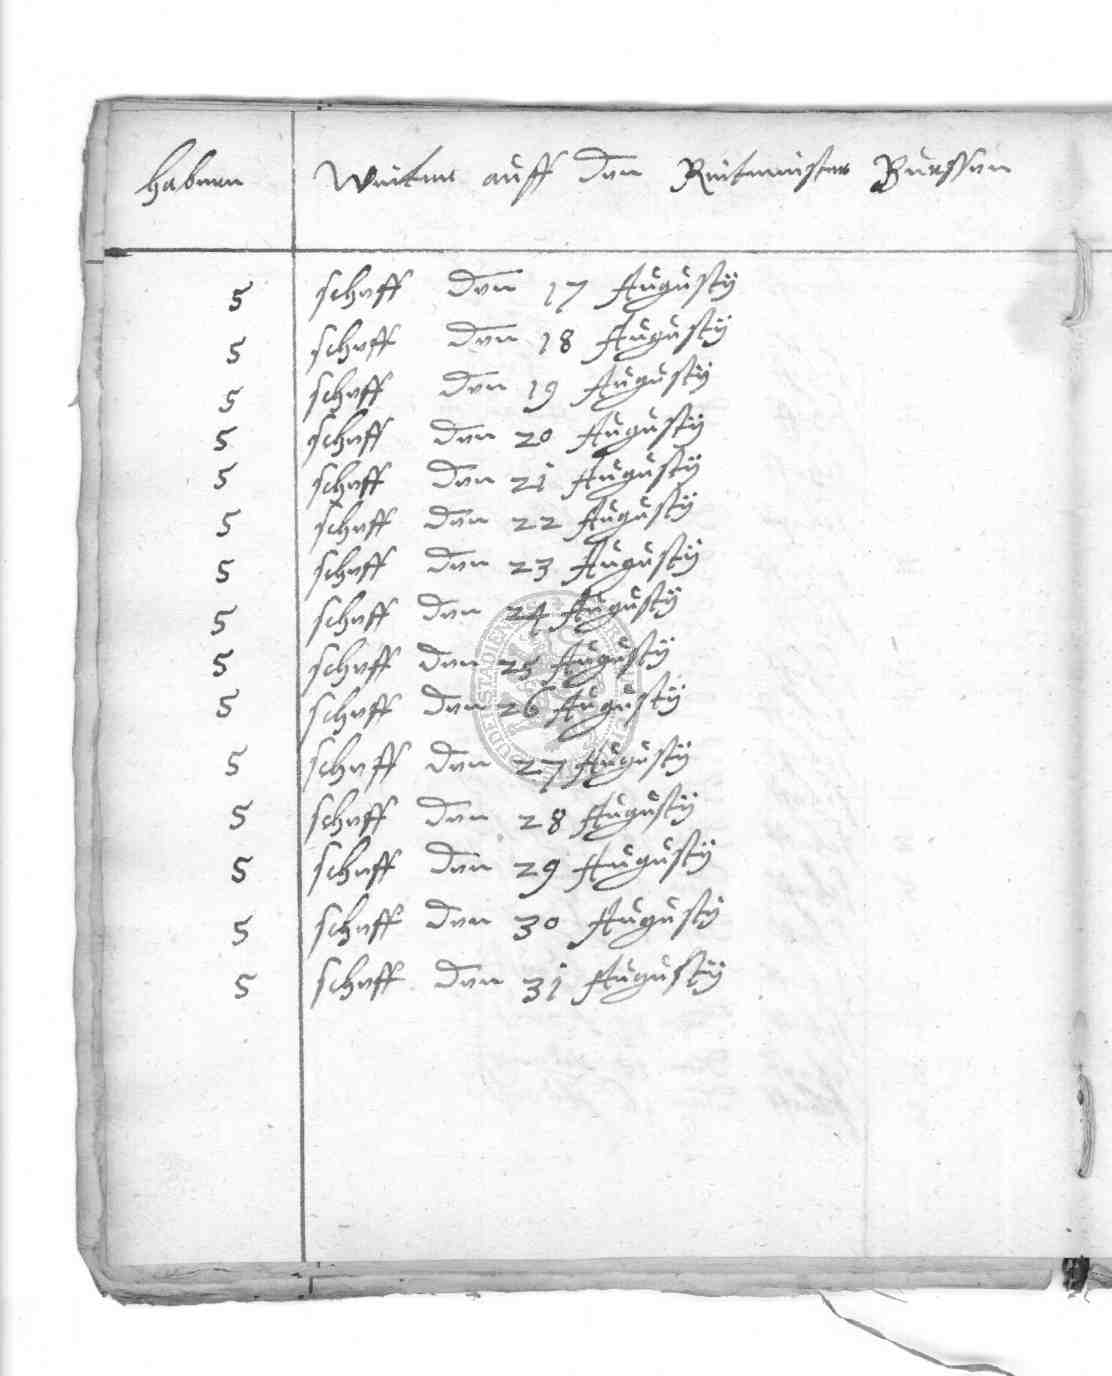 Haberen Weiter auff den Reitmeister Burssen
5 scheff den 17 Augusty
5 scheff den 18 Augusty
5 scheff den 19 Augusty
5 scheff den 20 Augusty
5 scheff den 21 Augusty
5 scheff den 22 Augusty
5 scheff den 23 Augusty
5 scheff den 24 Augusty
5 scheff den 25 Augusty
5 scheff den 26 Augusty
5 scheff den 27 Augusty
5 scheff den 28 Augusty
5 scheff den 29 Augusty
5 scheff den 30 Augusty
5 scheff den 31 Augusty